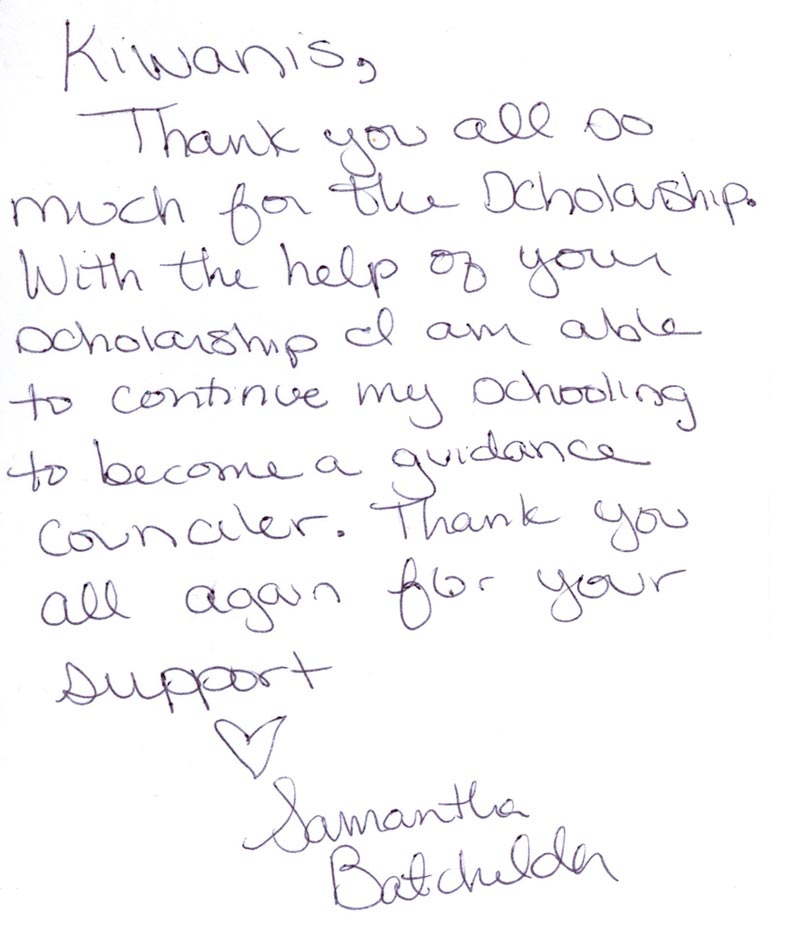 Kiwanis,
Thank you all so
much for the Scholarship.
With the help of your
scholarship I am able
to continue my schooling
to become a guidance
counciler. Thank you
all again for your
support
♡
Samantha
Batchelder